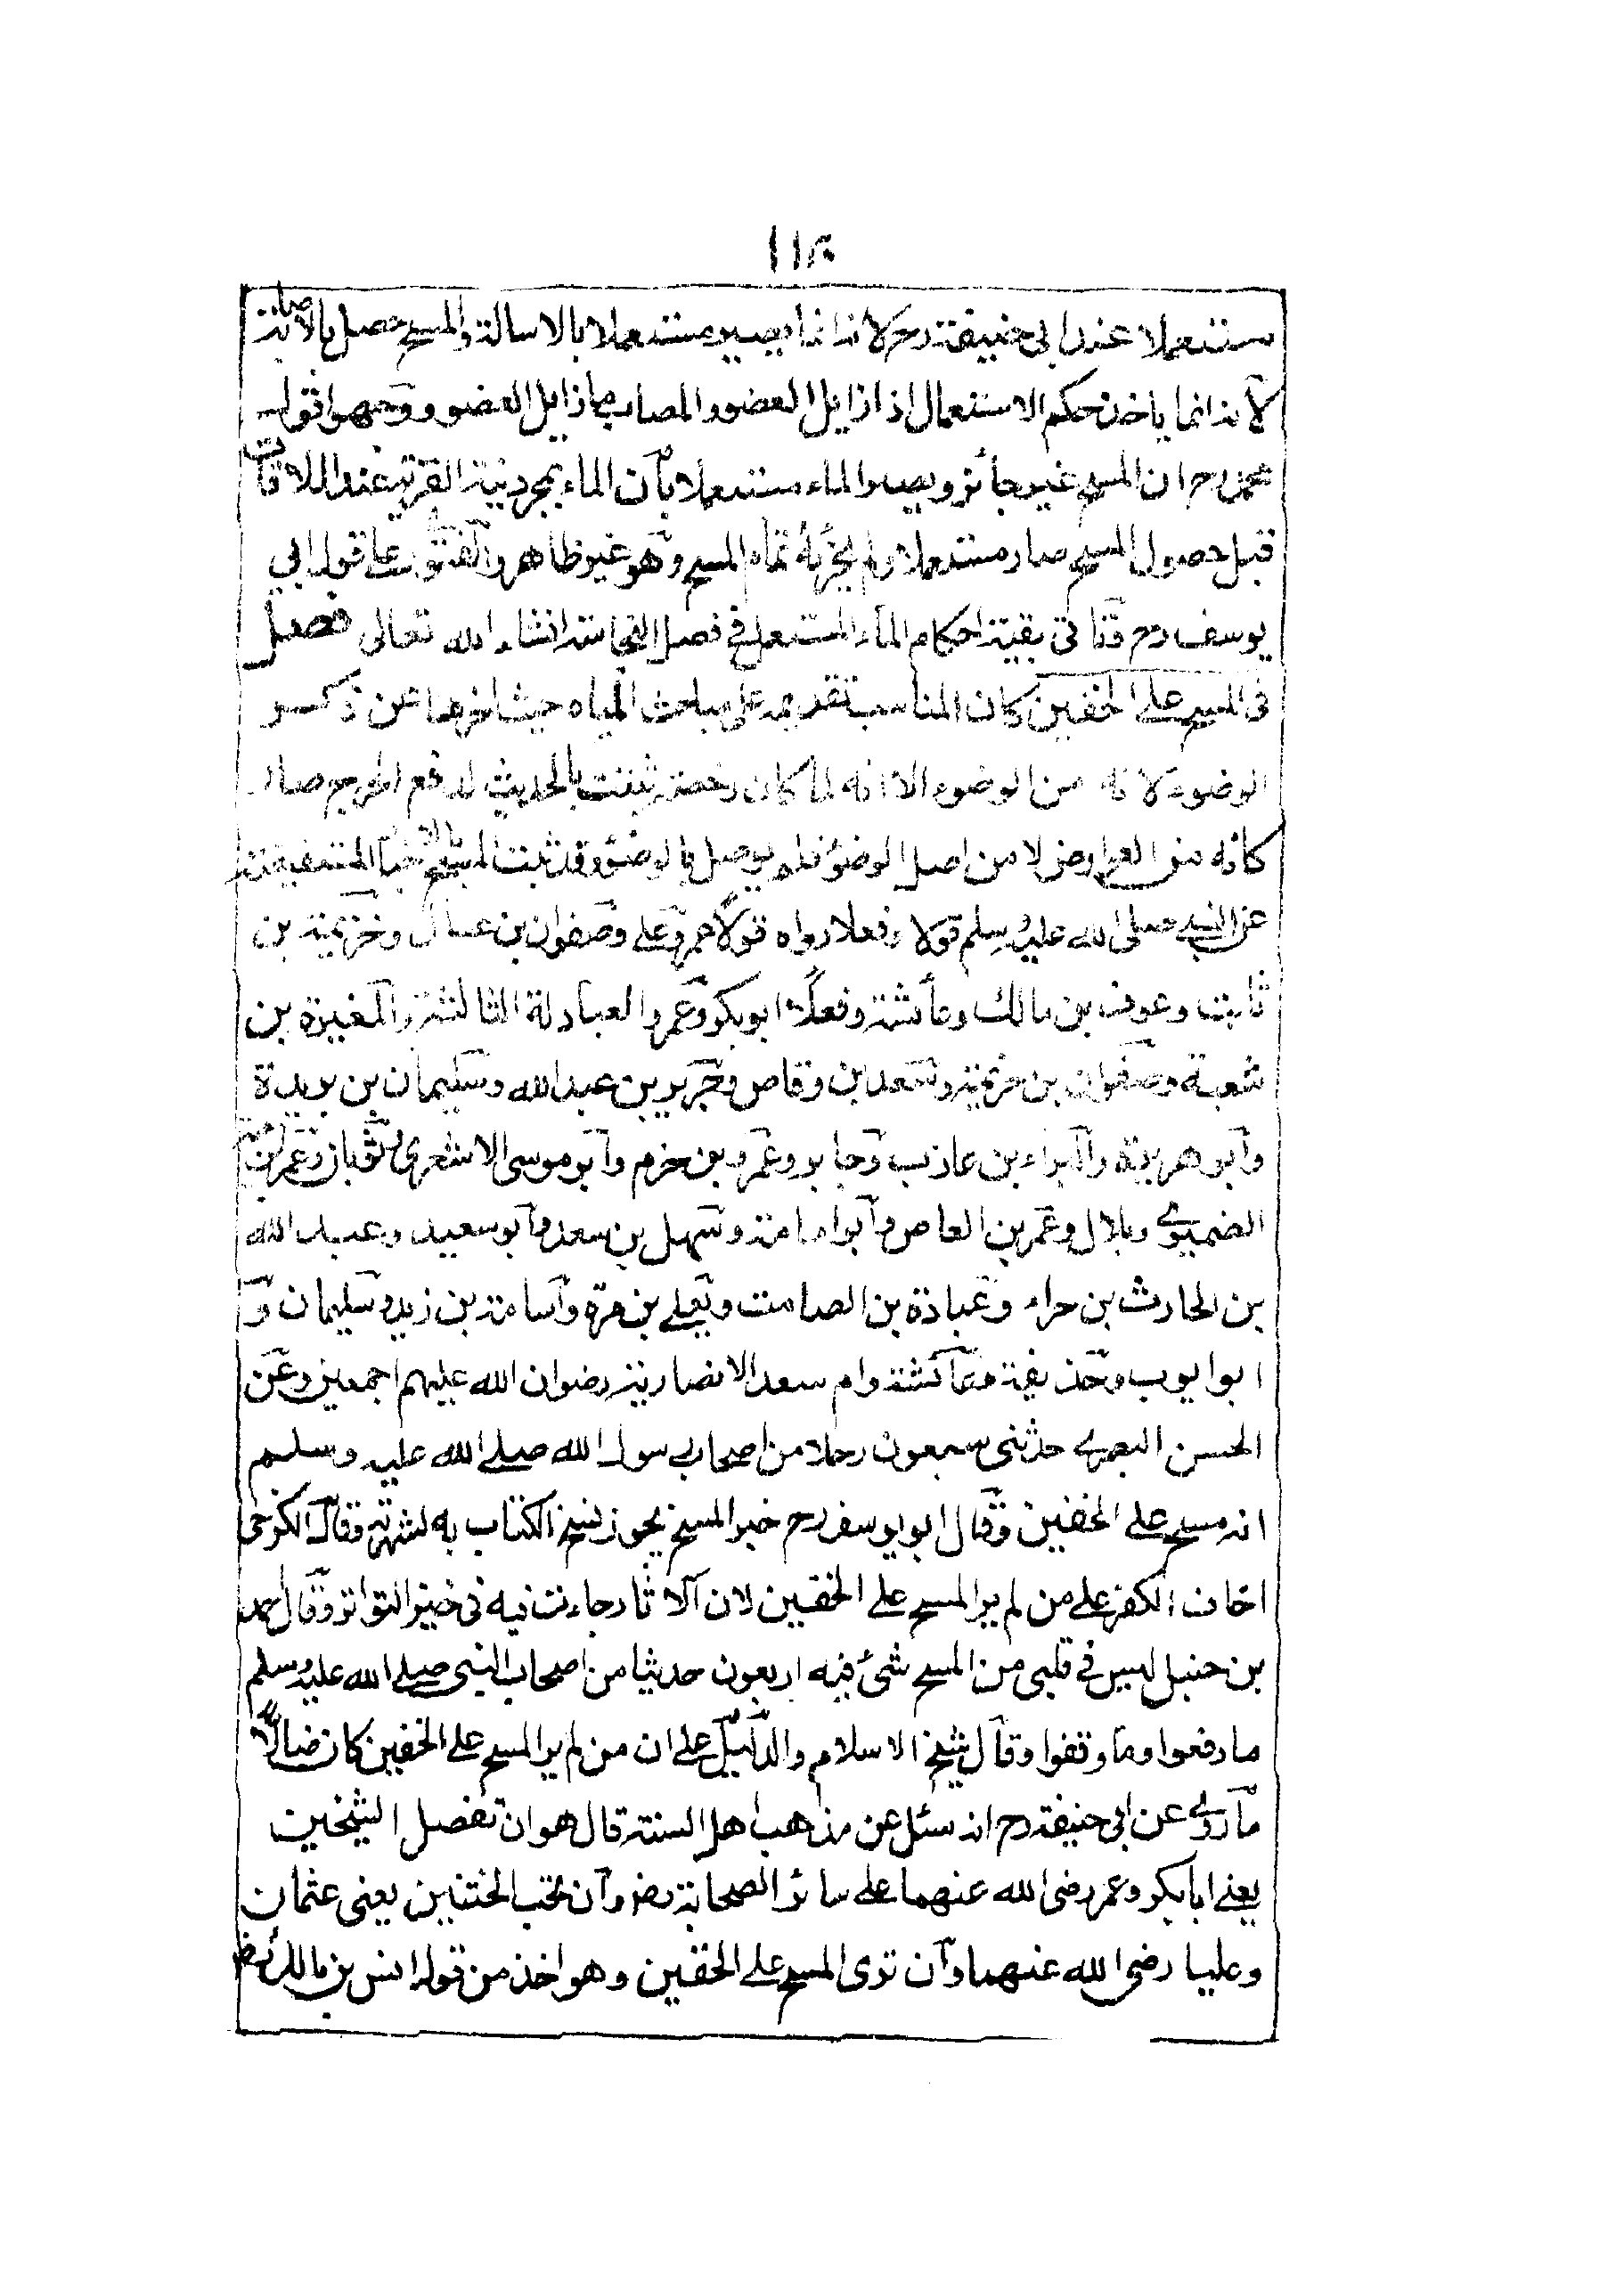 ١١٣
مستعملا عند ابى حنيفة رح لانه انما يصير مستعملا بالاسالة والمسح حصل بالاصابة
لانه انما ياخذ حكم الاستعمال اذا زايل العضو والمصاب ما زايل العضو ووجهوا قول
محمد رح ان المسح غير جائز ويصير الماء مستعملا بان الماء بمجرد نية القربة عند الملاقات
قبل حصول المسح صار مستعملا ولم يجزئه تمام المسح وهو غير ظاهر والفتوى على قول ابي
يوسف رح وتأتى بقية احكام الماء المستعمل في فصل النجاسة انشاء الله تعالى فصل
فى المسح على الخفين كان المناسب تقديمه على مباحث المياه حيث اخرها عن ذكر
الوضوء لانه من الوضوء الا انه لما كان رخصة ثبتت بالحديث لدفع الحرج صار
كأنه من العوارض لا من اصل الوضوء فلم يوصل بالوضوء وقد ثبت المسح بالاخبار المستفيضة
عن النبي صلى الله عليه وسلم قولا وفعلا رواه قولا عمر وعلي وصفوان بن عسال وخزيمة بن
ثابت وعوف بن مالك وعائشة وفعلا ابو بكر وعمر والعبادلة الثالثة والمغيرة بن
شعبة وصفوان بن خزيمة وسعد بن وقاص وجرير بن عبد الله وسليمان بن بريدة
وابو هريرة والبراء بن عازب وجابر وعمرو بن حزم وابو موسى الاشعرى وثوبان وعمرو بن
الضميري وبلال وعمر بن العاص وابو امامة وسهل بن سعد وابو سعيد وعبد الله
بن الحارث بن جراء وعبادة بن الصامت ويعلي بن مرة واسامة بن زيد وسليمان و
ابو ايوب وحذيفة وعائشة وام سعد الانصارية رضوان الله عليهم اجمعين وعن
الحسن البصرى حدثنى سبعون رجلا من اصحاب رسول الله صلى الله عليه وسلم
انه مسح على الخفين وقال ابو يوسف رح خبر المسح يجوز نسخ الكتاب به لشهرته وقال الكرخى
اخاف الكفر على من لم ير المسح على الخفين لان الاثار جاءت فيه فى خبر التواتر وقال احمد
بن حنبل ليس في قلبى من المسح شئ فيه اربعون حديثا من اصحاب النبى صلى الله عليه وسلم
ما رفعوا وما وقفوا وقال شيخ الاسلام والدليل على ان من لم ير المسح على الخفين كان ضالا
ما روي عن ابى حنيفة رح انه سئل عن مذهب اهل السنة قال هو ان تفضل الشيخين
يعنى ابا بكر وعمر رضى الله عنهما على سائر الصحابة رض وان تحب الختنين يعنى عثمان
وعليا رضى الله عنهما وان ترى المسح على الخفين وهو اخذ من قول انس بن مالك رض